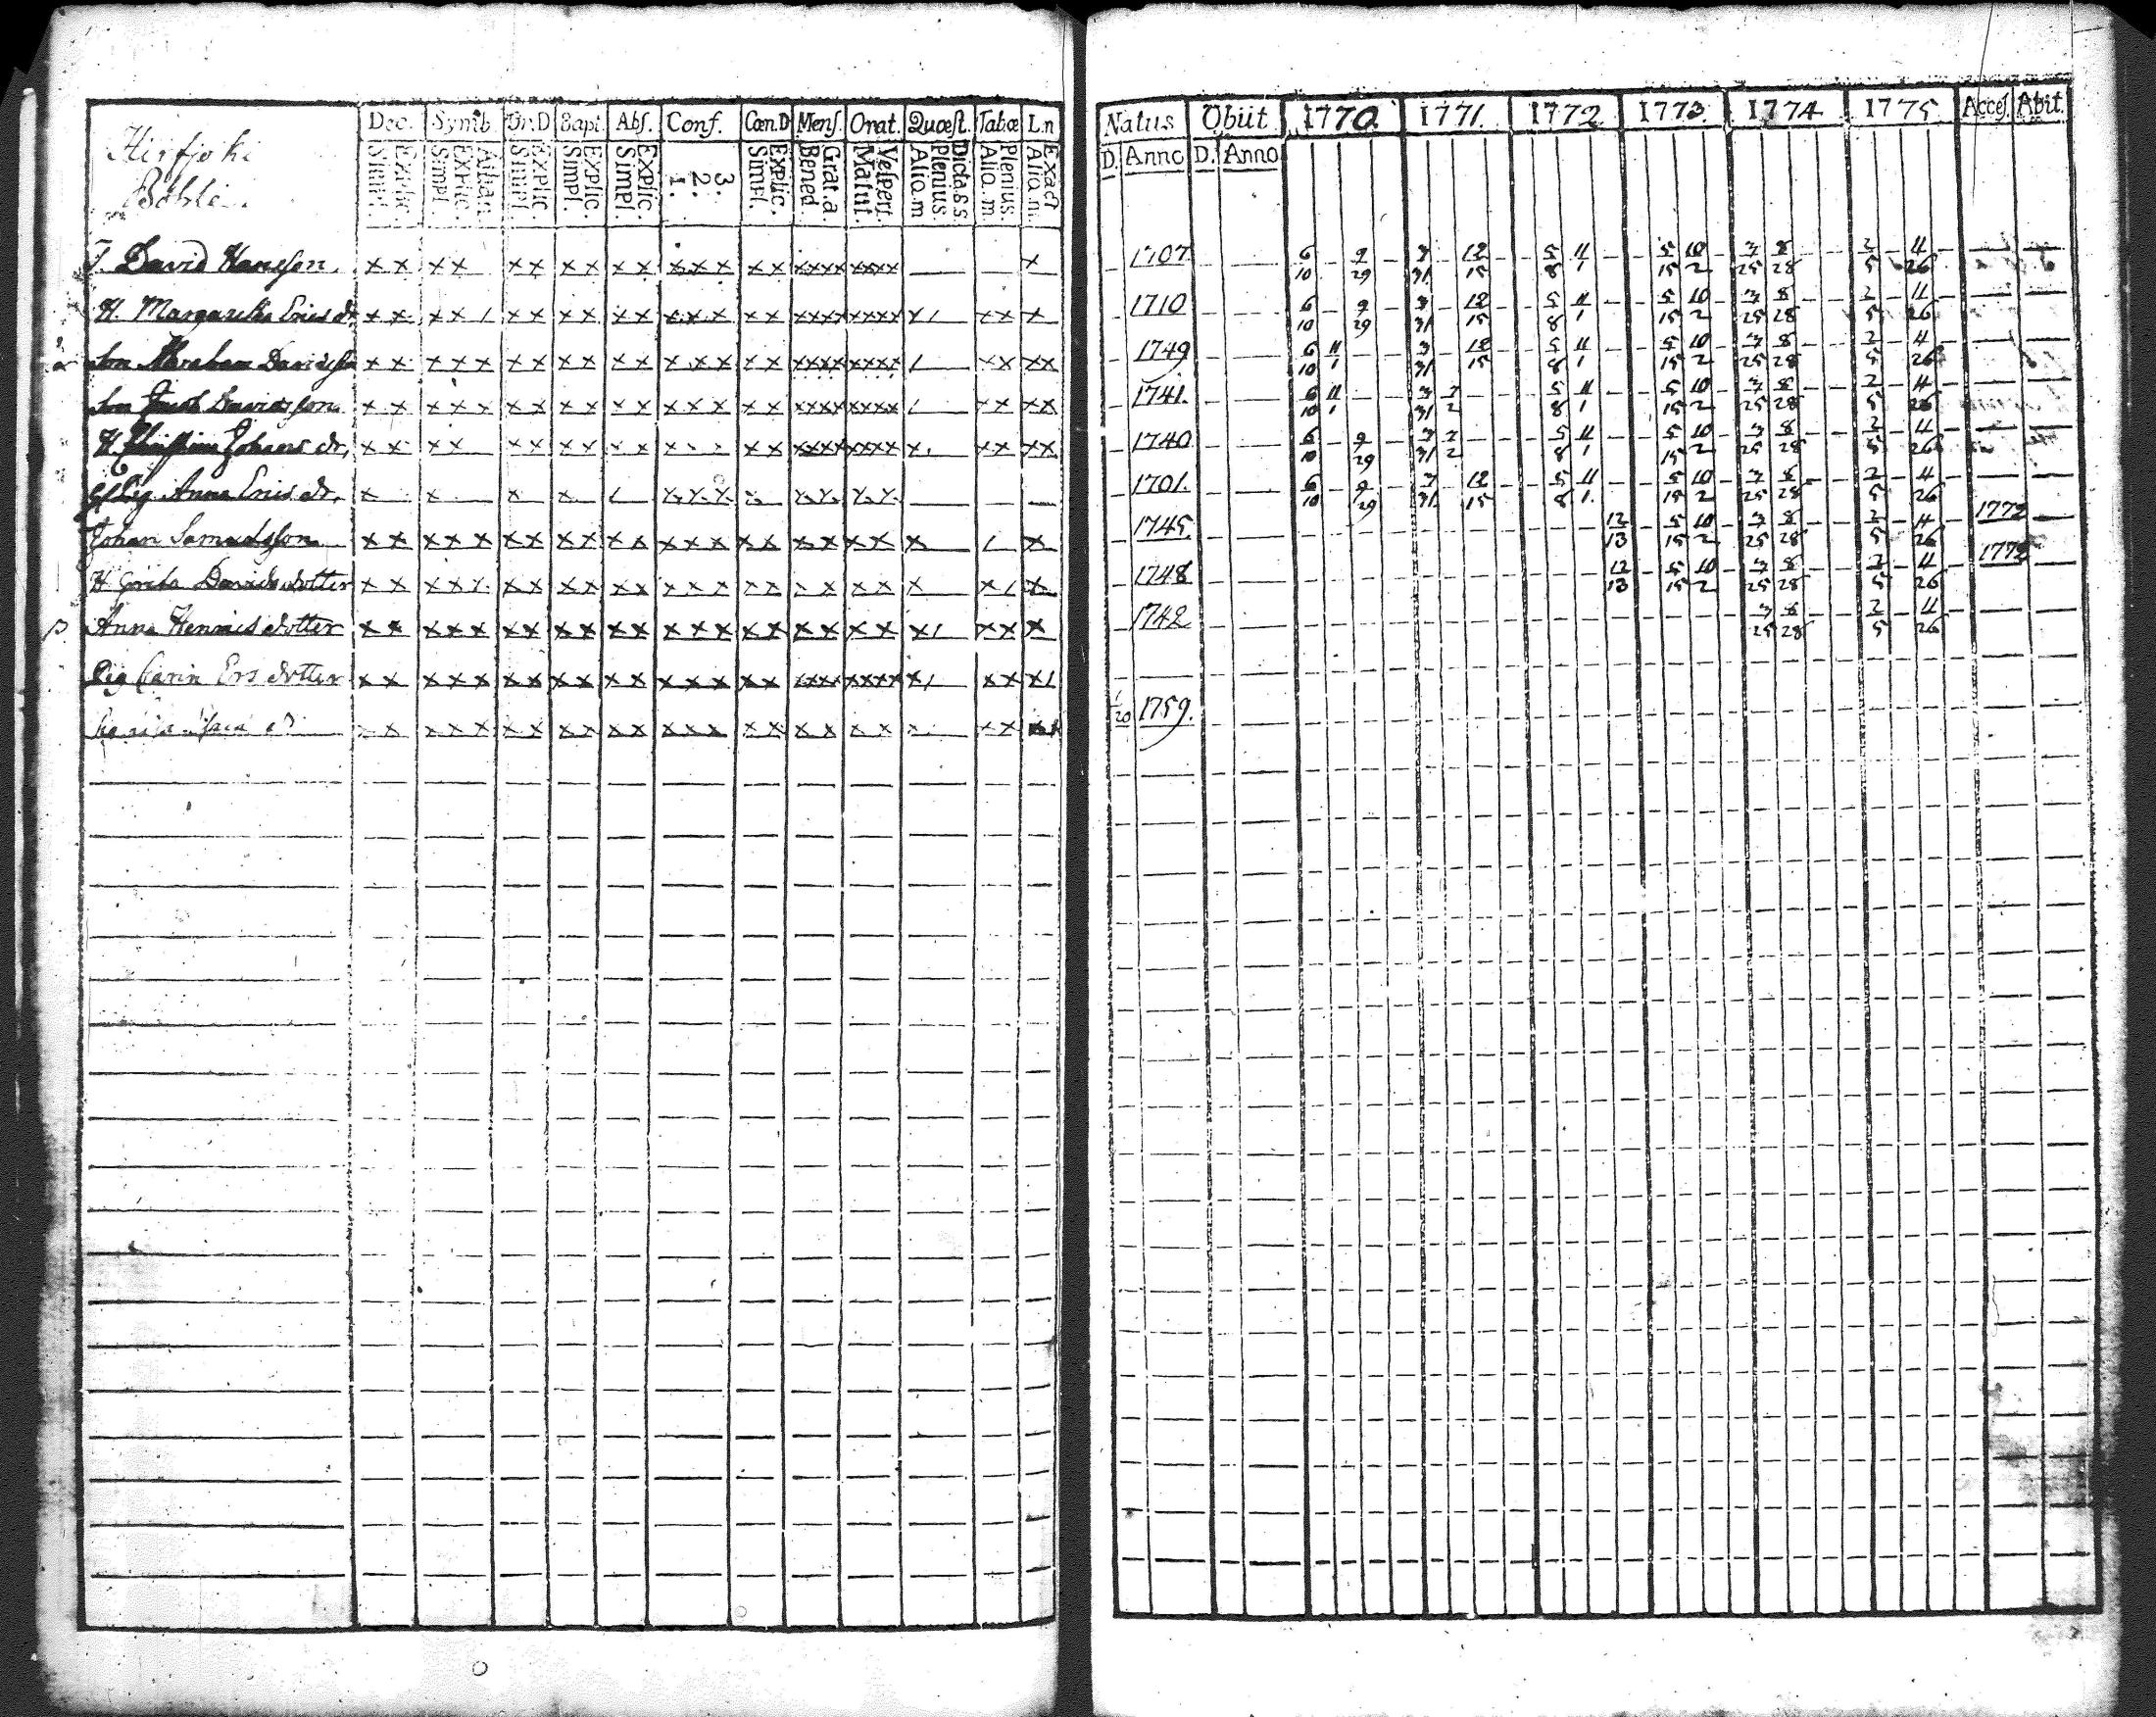 Hirfjoki
Böhle
Dec. Symb. Or.D Bapt. Abs. Conf. Cœn.D Mens. Orat. Quæst. Tabæ L.n
Simpl. Explic. Simpl. Explic. Athan. Simpl. Explic. Simpl. Explic. Simpl. Explic. 1. 2. 3. Simpl. Explic. Bened. Grat. a Matut. Vespert. Aliq. m Plenius. Dicta s s Aliq. m. Plenius. Aliq. m. Exact
Natus Obiit 1770. 1771. 1772 1773 1774 1775 Acces. Abit.
D. Anno D. Anno
David Hansson. x x x x x x x x x x x x x x x xxxx xxxx x 1707 6 9 3 12 5 11 5 10 7 8 2 11
10 29 31 15 8 1 15 2 25 28 5 26
H. Margaretha Erics dr. x x x x / x x x x x x x x x x x xxxx xxxx x/ x x x 1710 6 9 3 12 5 11 5 10 7 8 2 11
10 29 31 15 8 1 15 2 25 28 5 26
Son Abraham Davidsson x x x x x x x x x x x x x x x x xxxx xxxx / x x x x 1749 6 11 3 12 5 11 5 10 7 8 2 11
10 1 31 15 8 1 15 2 25 28 5 26
Son Jacob Davidsson x x x x x x x x x x x x x x x x xxxx xxxx / x x x x 1741. 6 11 3 7 5 11 5 10 7 8 2 11
10 1 31 2 8 1 15 2 25 28 5 26
H. Johans dr. x x x x x x x x x x x x x xxxx xxxx x x x x 1740 6 9 3 7 5 11 5 10 7 8 2 11
10 29 31 2 8 1 15 2 25 28 5 26
Anna Erics dr. x x x x / x x x x x x x 1701. 6 9 3 12 5 11 5 10 7 8 2 11
10 29 31 15 8 1 15 2 25 28 5 26
Johan Samuelsson x x x x x x x x x x x x x x x x x x x x x / x 1745. 12 5 10 7 8 2 11 1772
13 15 2 25 28 5 26
H Greta Davidsdotter x x x x x x x x x x x x x x x x x x x x x x / x 1748 12 5 10 7 8 2 11 1772
13 15 2 25 28 5 26
Anna Henricsdotter x x x x x x x x x x x x x x x x x x x x x / x x x 1742 7 8 2 11
25 28 5 26
Pig Carin Ers dotter x x x x x x x x x x x x x x x x xxxx xxxx x / x x x /
x x x x x x x x x x x x x x x x x x x x x x 1/20 1759.